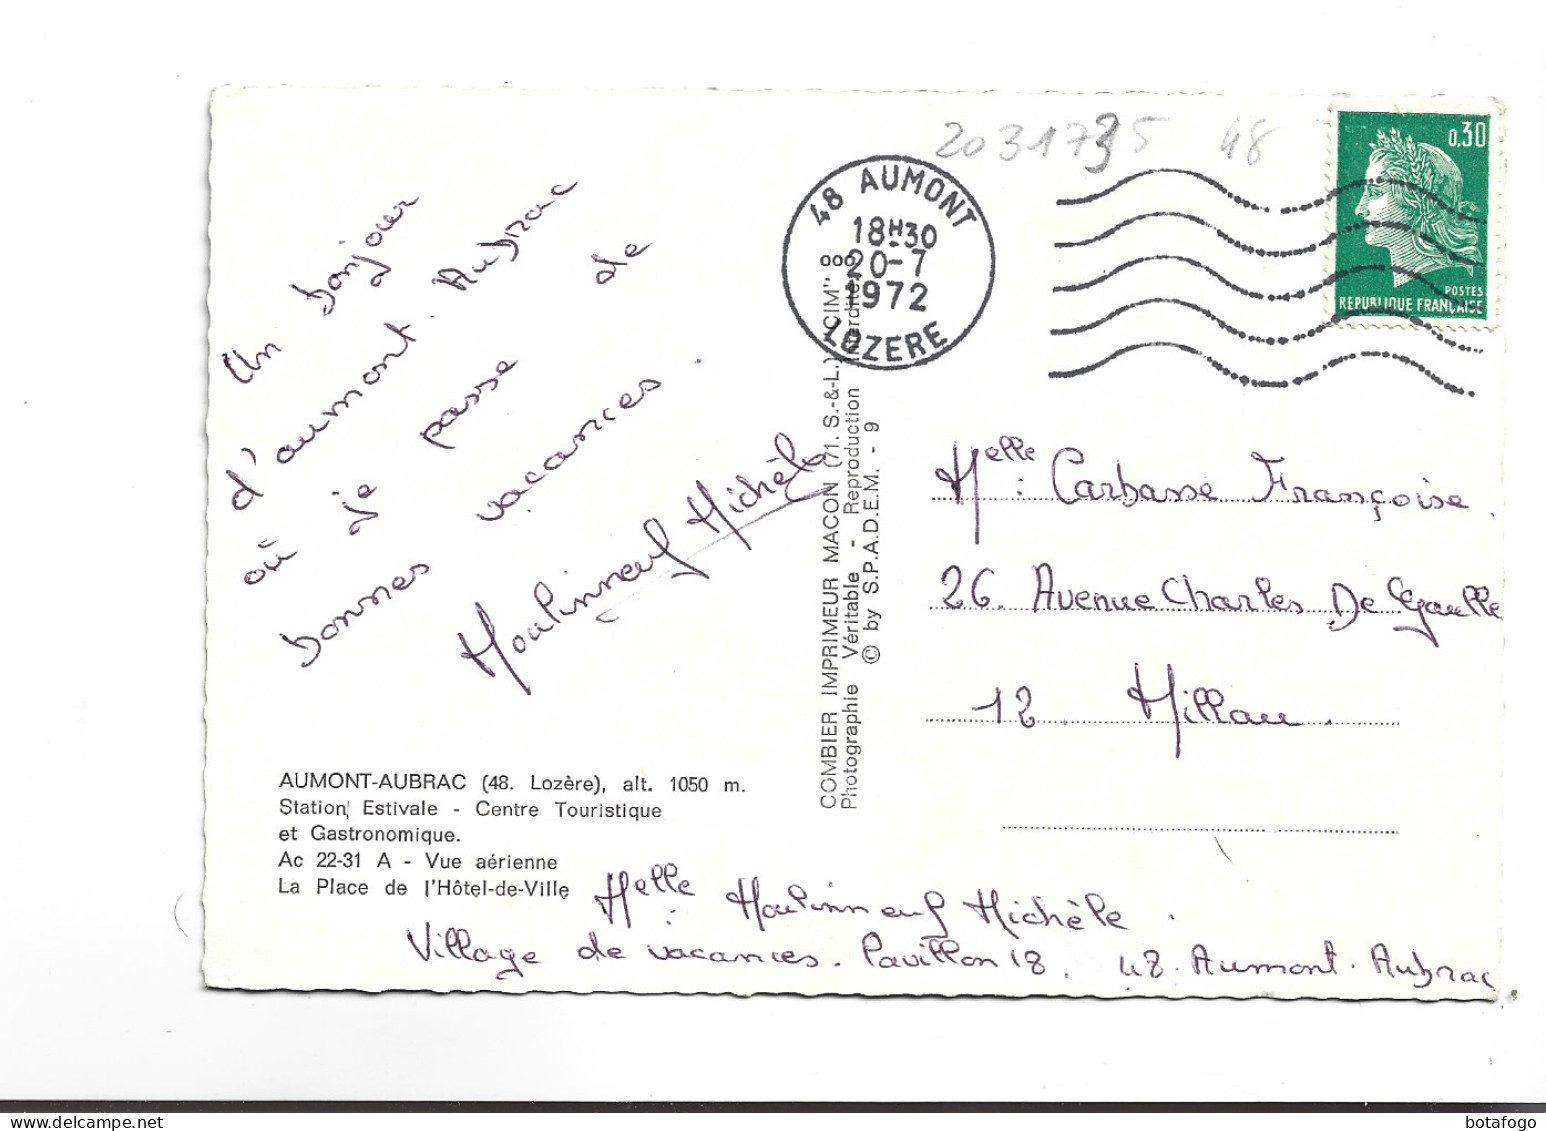 2031735 48
48 AUMONT
18H30
20-7
1972
LOZERE
0,30
POSTES
REPUBLIQUE FRANÇAISE
Un bonjour
d'aumont. Aubrac
où je passe de
bonnes vacances.
Moulinneuf Michèle
COMBIER IMPRIMEUR MACON (71. S.-&-L.) "CIM"
Photographie Véritable - Reproduction interdite
© by S.P.A.D.E.M. - 9
Melle : Carbasse Françoise.
26. Avenue Charles De Gaulle
12. Millau.
AUMONT-AUBRAC (48. Lozère), alt. 1050 m.
Station Estivale - Centre Touristique
et Gastronomique.
Ac 22-31 A - Vue aérienne
La Place de l'Hôtel-de-Ville
Melle : Moulinneuf Michèle.
Village de vacances. Pavillon 18. 48. Aumont. Aubrac
botafogo